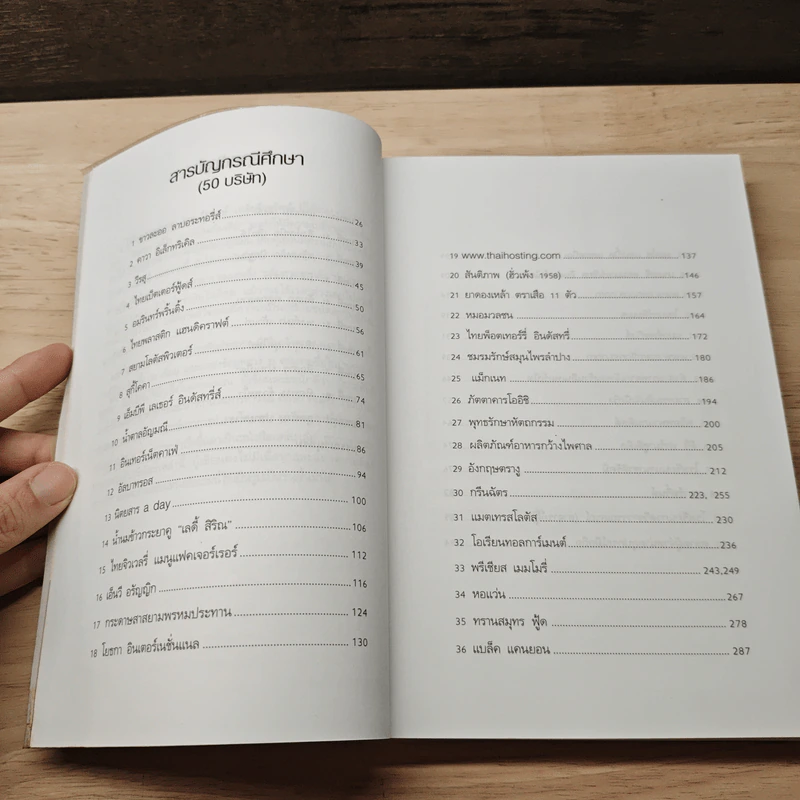 สารบัญกรณีศึกษา
(50 บริษัท)
1 ขาวละออ ลาบอระทอรี่ส์ 26
2 คาวา อิเล็กทริเคิล 33
3 วีรสุ 39
4 ไทยเป็ตเตอร์ฟู้ดส์ 45
5 อมรินทร์พริ้นติ้ง 50
6 ไทยพลาสติก แฮนดิคราฟต์ 56
7 สยามโลตัสพิวเตอร์ 61
8 สุกี้โคคา 65
9 เอ็มยีพี เลเธอร์ อินดัสทรี่ส์ 74
10 น้ำตาลอัญมณี 81
11 อินเทอร์เน็ตคาเฟ่ 86
12 อัลบาทรอส 94
13 นิตยสาร a day 100
14 น้ำนมข้าวกระยาคู "เลดี้ สิริณ" 106
15 ไทยจิวเวลรี่ แมนูแฟคเจอร์เรอร์ 112
16 เอ็นวี อรัญญิก 116
17 กระดาษสาสยามพรหมประทาน 124
18 โยธกา อินเตอร์เนชั่นแนล 130
19 www.thaihosting.com 137
20 สันติภาพ (ฮั่วเพ้ง 1958) 146
21 ยาดองเหล้า ตราเสือ 11 ตัว 157
22 หมอมวลชน 164
23 ไทยพ็อตเทอร์รี่ อินดัสทรี่ 172
24 ชมรมรักษ์สมุนไพรลำปาง 180
25 แม็กเนท 186
26 ภัตตาคารโออิชิ 194
27 พุทธรักษาหัตถกรรม 200
28 ผลิตภัณฑ์อาหารกว้างไพศาล 205
29 อังกฤษตรางู 212
30 กรีนฉัตร 223, 255
31 แมตเทรสโลตัส 230
32 โอเรียนทอลการ์เมนต์ 236
33 พรีเชียส เมมโมรี่ 243,249
34 หอแว่น 267
35 ทรานสมุทร ฟู้ด 278
36 แบล็ค แคนยอน 287